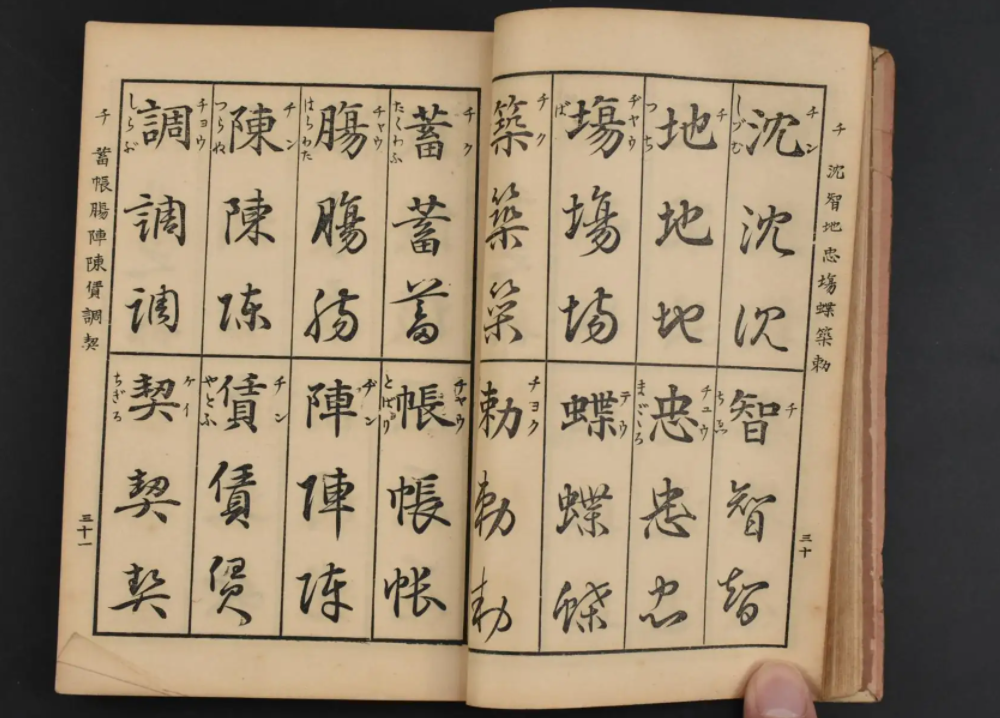 チ 沈智地忠塲蝶築勅
三十
チン
沈沈沈
しづむ
チ
智智智
ちゑ
チ
地地地
つち
チュウ
忠忠忠
まごゝろ
ヂャウ
塲塲塲
ば
テウ
蝶蝶蝶
チク
築築築
チョク
勅勅勅
チク
蓄蓄蓄
たくわふ
チャウ
帳帳帳
とばり
チャウ
膓膓膓
はらわた
ヂン
陣陣陣
チン
陳陳陳
つらね
チン
賃賃賃
やとふ
チョウ
調調調
しらぶ
ケイ
契契契
ちぎる
チ 蓄帳膓陣陳賃調契
三十一